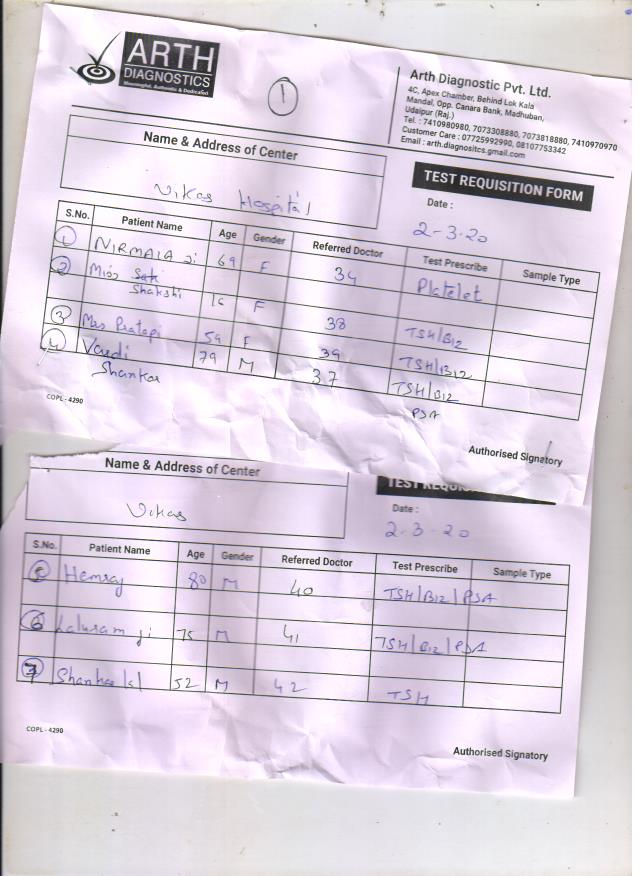 ARTH
DIAGNOSTICS
Meaningful, Authentic & Dedicated
1
Arth Diagnostic Pvt. Ltd.
4C, Apex Chamber, Behind Lok Kala
Mandal, Opp. Canara Bank, Madhuban,
Udaipur (Raj.)
Tel. : 7410980980, 7073308880, 7073818880, 7410970970
Customer Care : 07725992990, 08107753342
Email : arth.diagnositcs.gmail.com
Name & Address of Center
TEST REQUISITION FORM
Vikas Hospital
Date :
2-3-20
S.No. Patient Name Age Gender Referred Doctor Test Prescribe Sample Type
1 NIRMALA Ji 69 F 34 Platelet
2 Miss Sak
Shakshi 16 F 38 TSH/B12
3 Mrs Pratapi 59 F 39 TSH/B12
4 Vardi 79 M 37 TSH/B12
Shankar PSA
COPL - 4290
Authorised Signatory
Name & Address of Center
TEST REQU
Vikas
Date :
2-3-20
S.No. Patient Name Age Gender Referred Doctor Test Prescribe Sample Type
5 Hemraj 80 M 40 TSH/B12/PSA
6 Laluram ji 75 M 41 TSH/B12/PSA
7 Shankar lal 52 M 42 TSH
COPL - 4290
Authorised Signatory